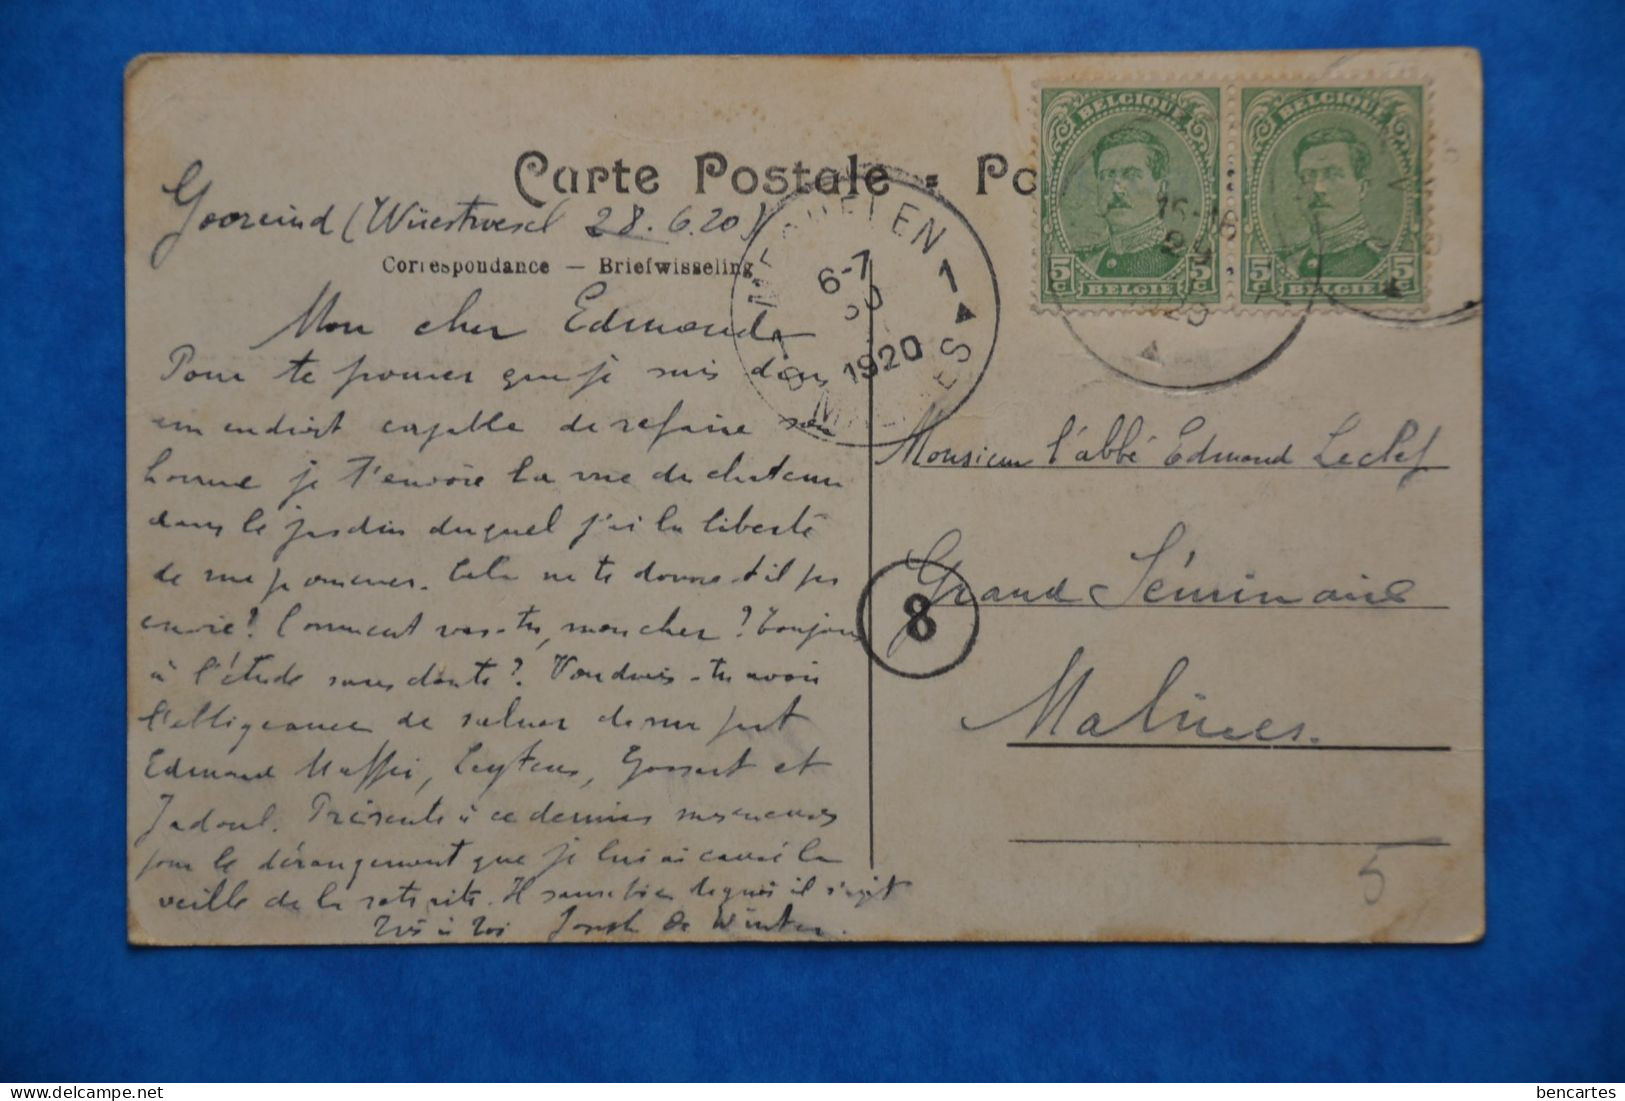 Carte Postale = Po
Gooreind (Wüestwesel 28.6.20)
Correspondance — Briefwisseling
Mon cher Edmond,
Pour te prouver que je suis dans
un endroit capable de refaire son
homme je t'envoie la vue du chateau
dans le jardin duquel j'ai la liberté
de me promener. Cela ne te donne-t-il pas
envie? Comment vas-tu, mon cher? Toujours
à l'étude sans doute? Voudrais-tu avoir
l'obligeance de saluer de ma part
Edmond Maffei, Leytens, Gossart et
Jadoul. Présente à ce dernier mes excuses
pour le dérangement que je lui ai causé la
veille de la retraite. Il saura bien de quoi il s'agit
Joseph De Winter.
BELGIQUE
5 c 5 c
BELGIE
BELGIQUE
5 c 5 c
BELGIE
MECHELEN 1
6-7
30
1920
MALINES
Monsieur l'abbé Edmond Leclef
Grand Séminaire
Malines.
8
5
bencartes